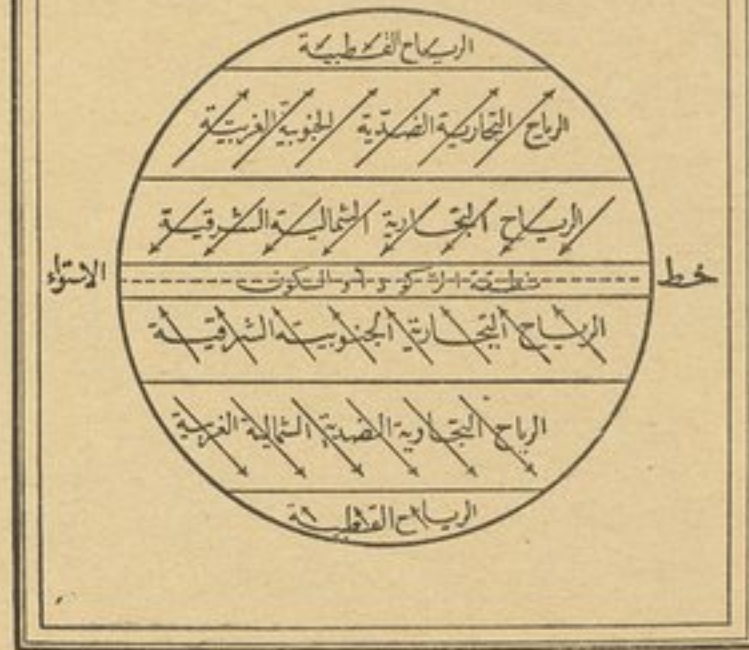 الرياح القطبية
الرياح التجارية الضدية الجنوبية الغربية
الرياح التجارية الشمالية الشرقية
خط الاستواء
منطقة الركود او السكون
الرياح التجارية الجنوبية الشرقية
الرياح التجارية الضدية الشمالية الغربية
الرياح القطبية